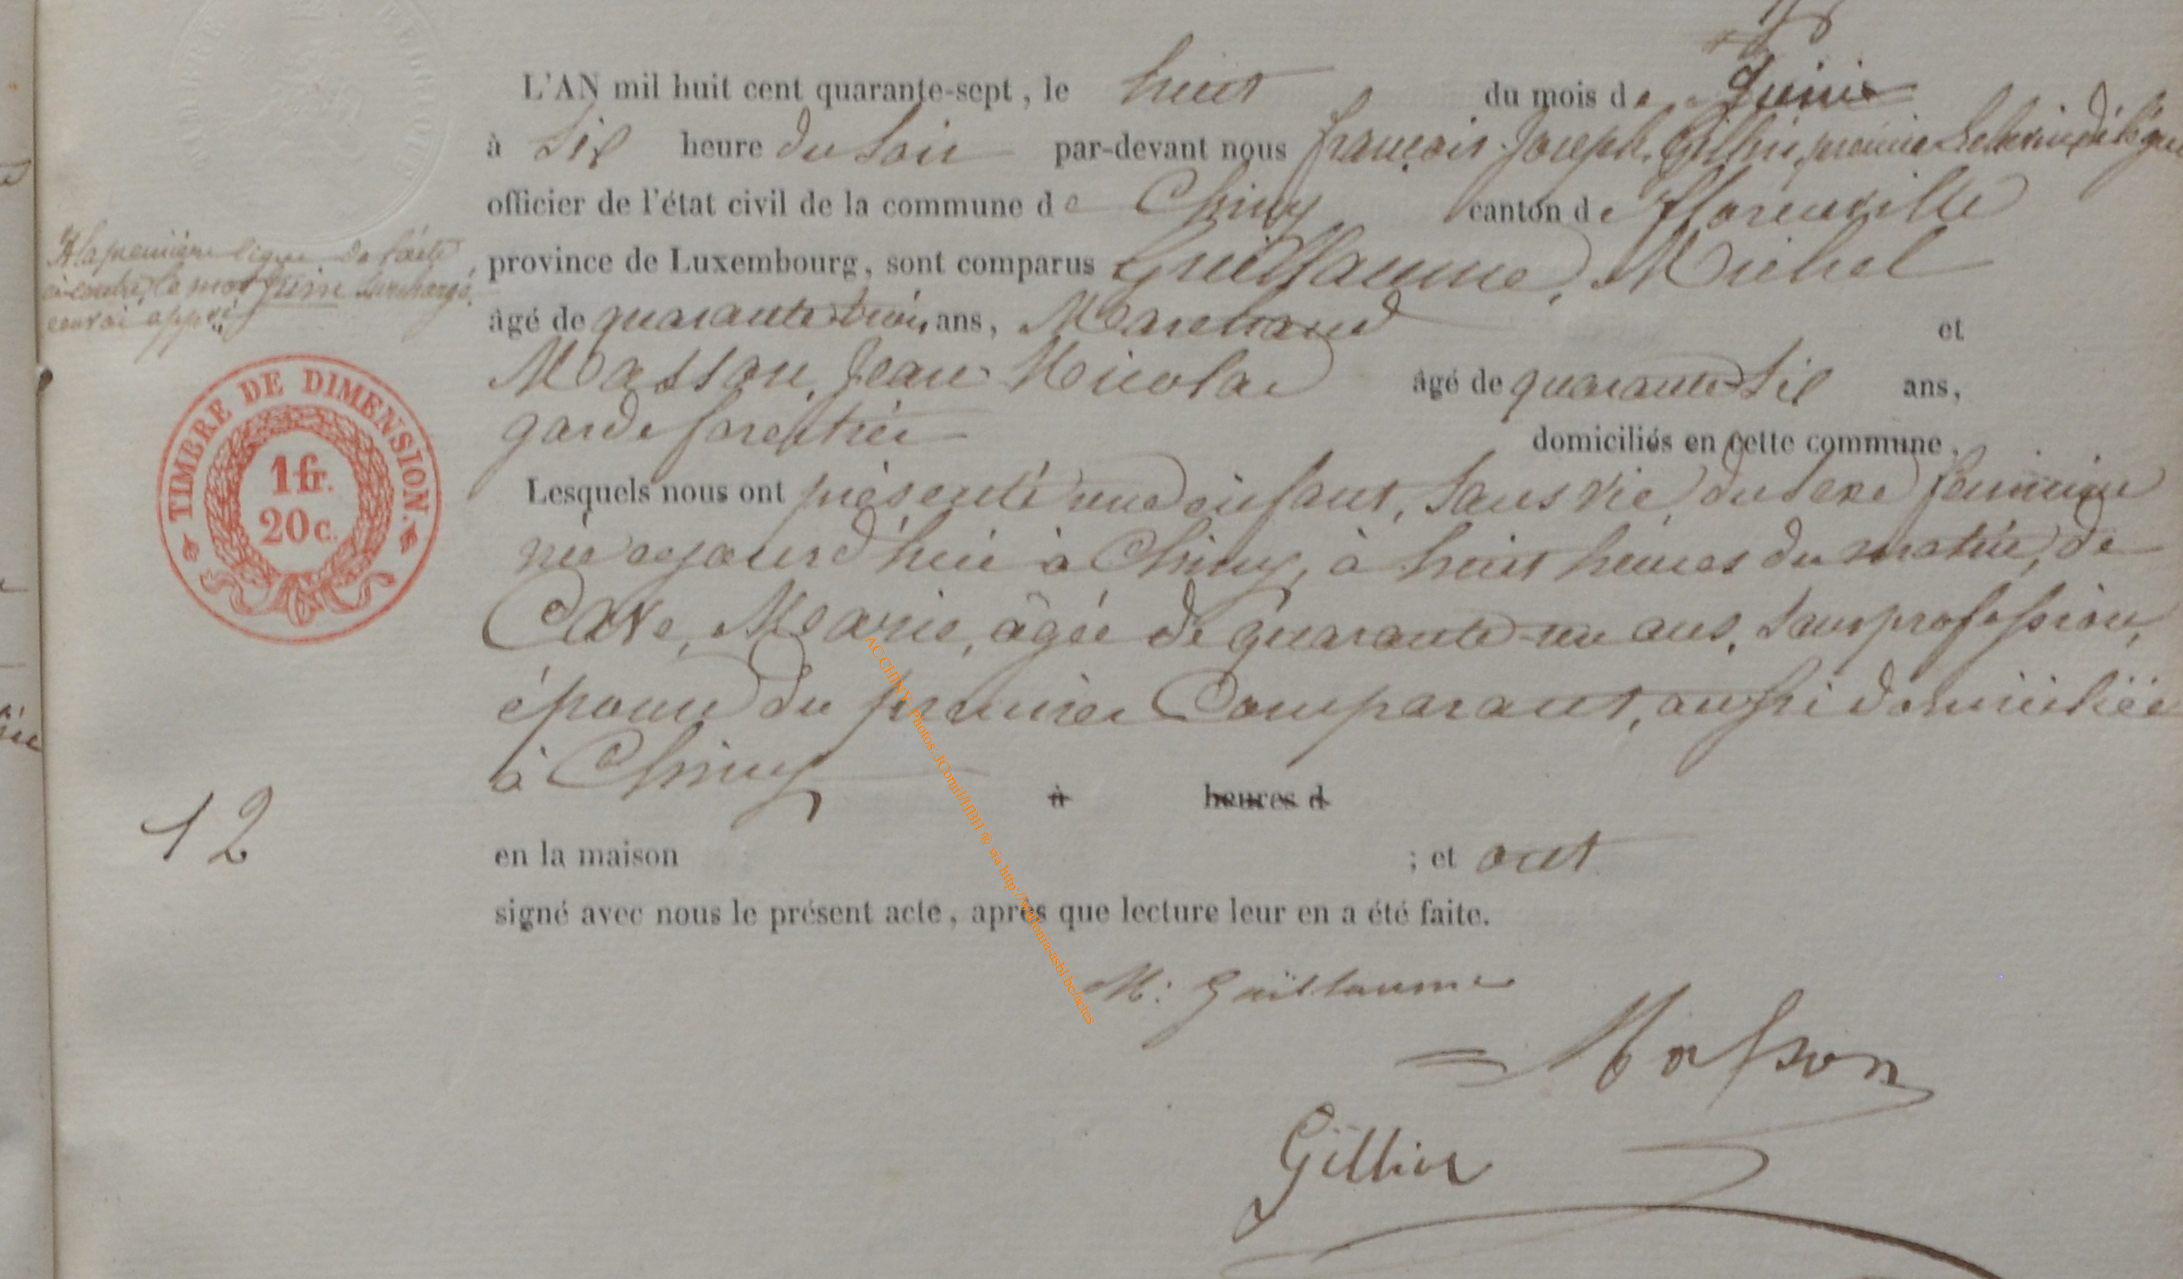 L'AN mil huit cent quarante-sept, le huit du mois de Juin
à six heure du soir par-devant nous françois Joseph Gillin, premier Echevin délégué
officier de l'état civil de la commune de Chiny canton de florenville
province de Luxembourg, sont comparus Guillaume, Michel
âgé de quarante trois ans, Marchand et
Masson, Jean Nicolas âgé de quarante six ans,
garde forestier domiciliés en cette commune.
Lesquels nous ont présenté une enfant, sans vie, du sexe féminin
née cejourd'hui à Chiny, à huit heures du matin, de
Marie, âgée de quarante-un ans, sans profession,
épouse du premier Comparant, aussi domiciliée
à Chiny à heures d
en la maison ; et ont
signé avec nous le présent acte, après que lecture leur en a été faite.
M: Guillaume
Masson
Gillin
A la première ligne de l'acte
ci-contre, le mot juin surchargé,
TIMBRE DE DIMENSION.
1 fr.
20 c.
12
AC CHINY Photos: